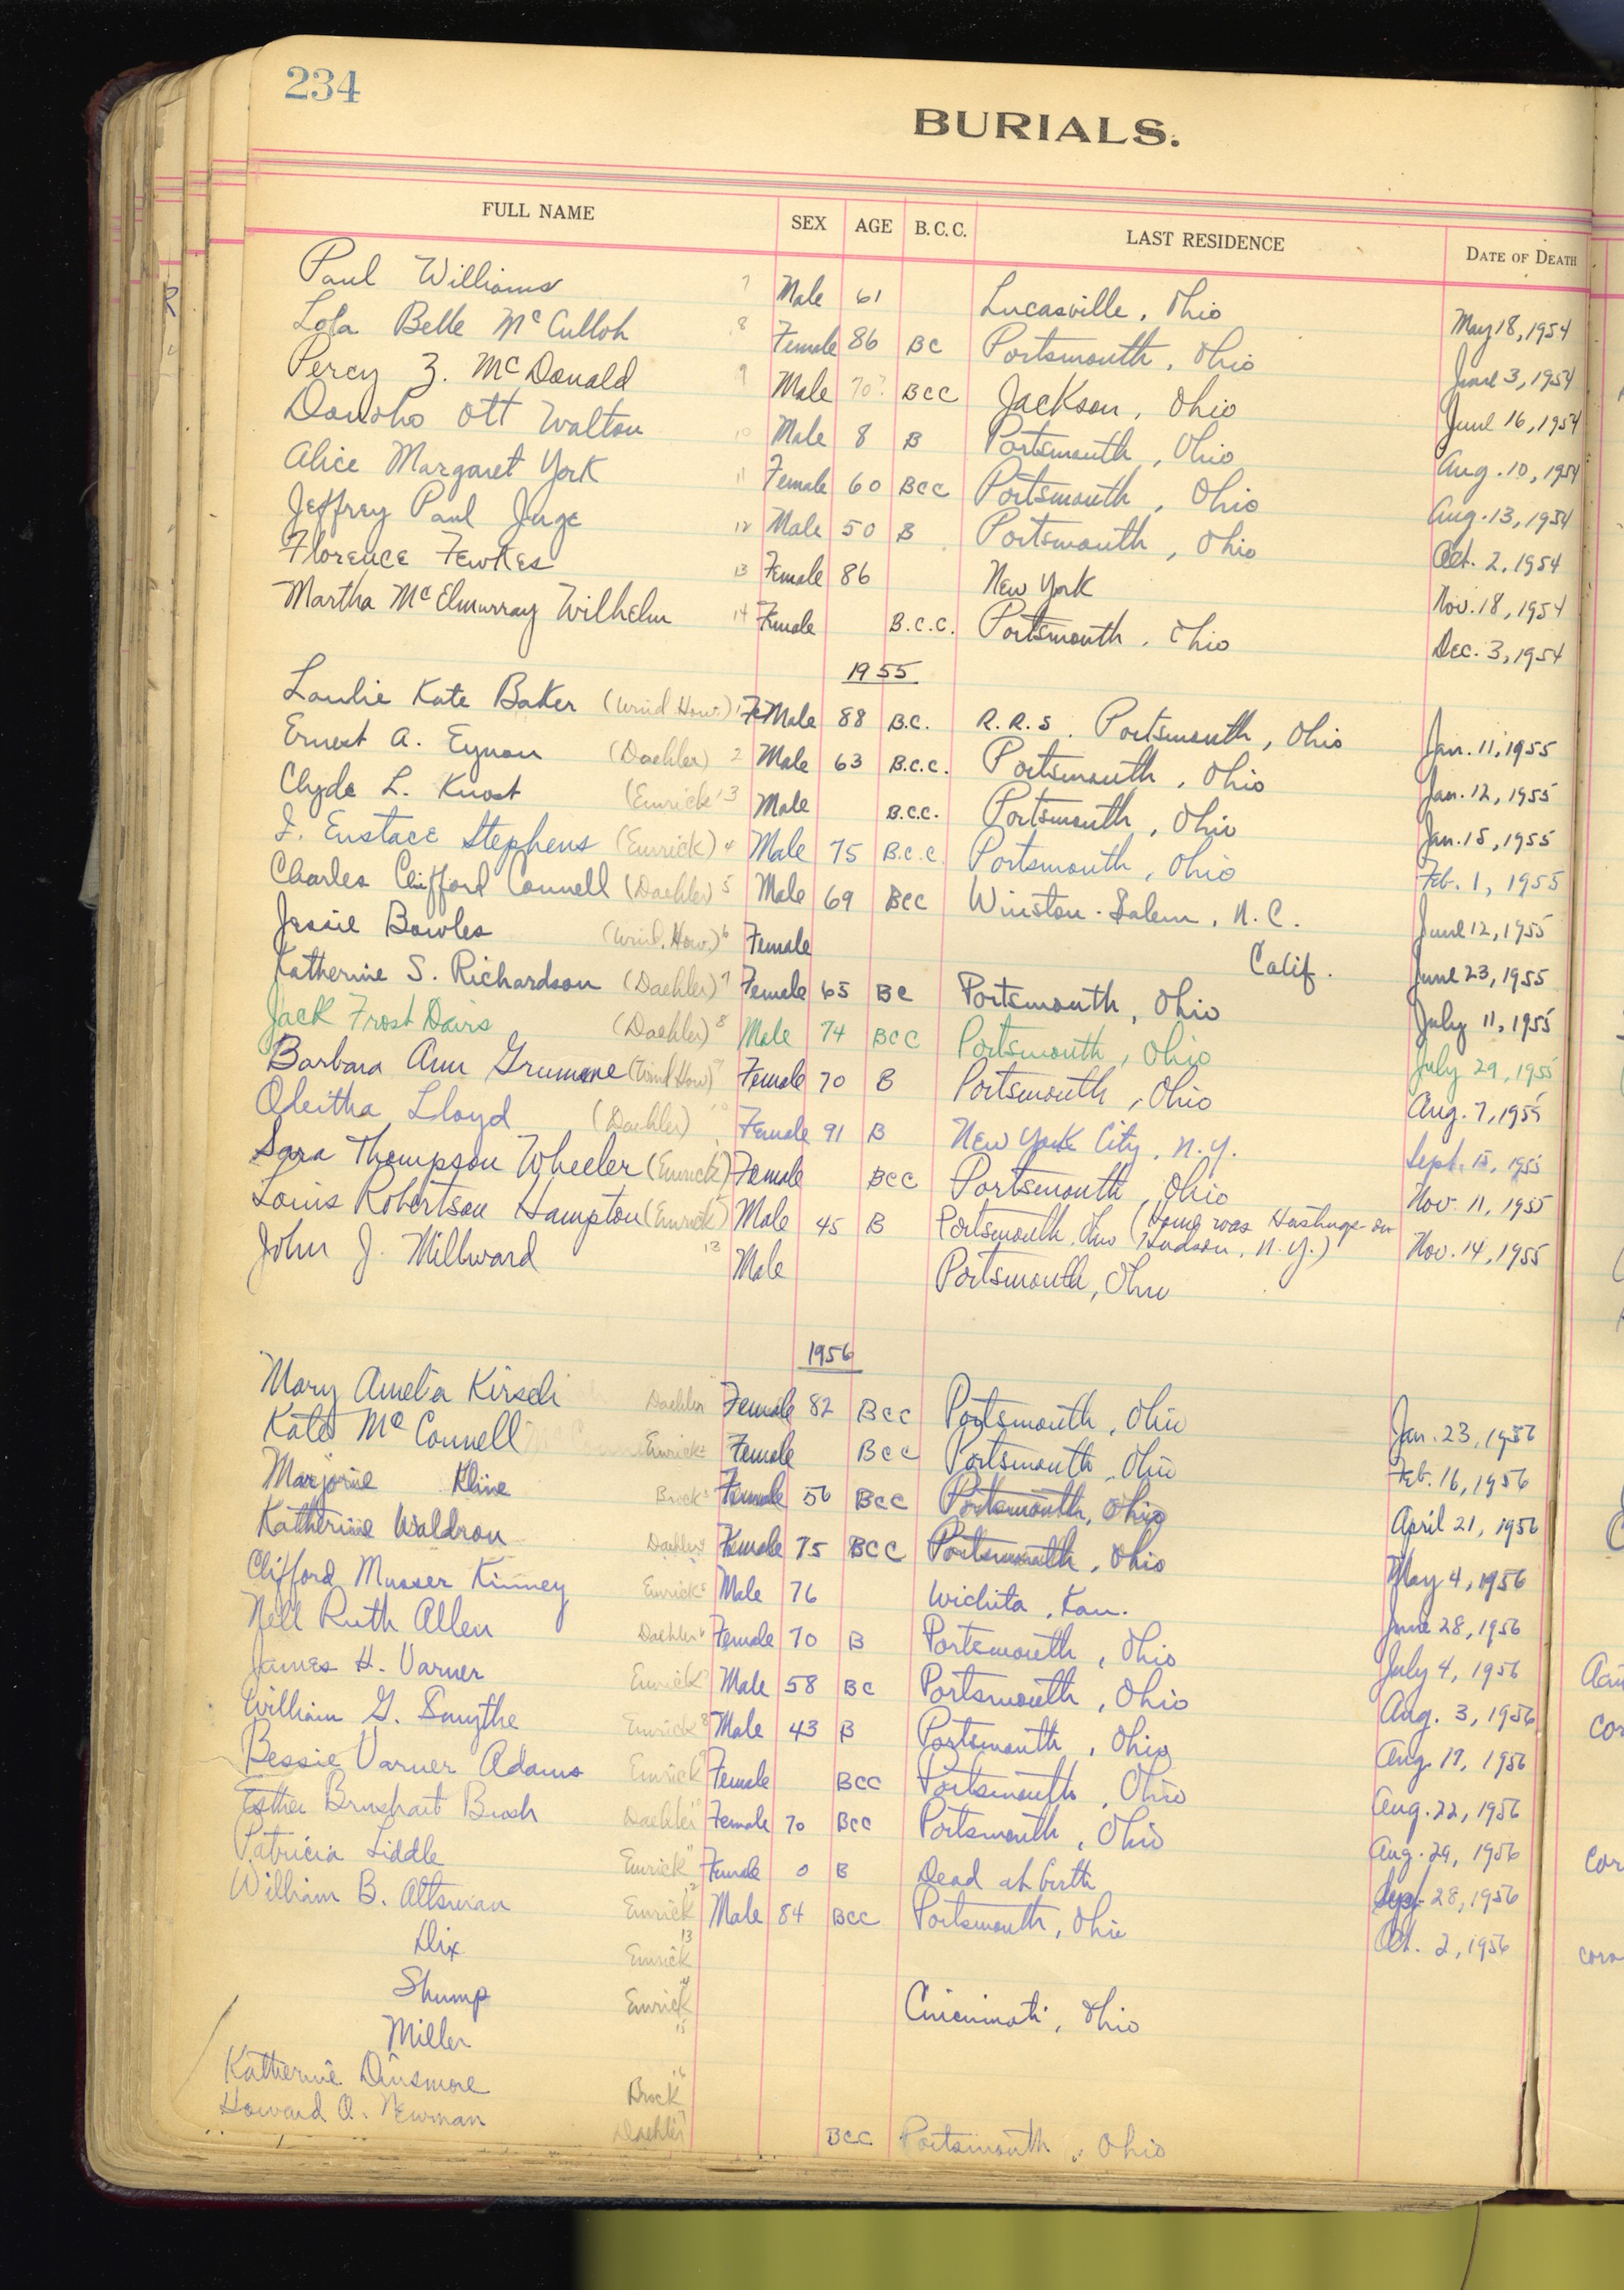 234
BURIALS.
FULL NAME SEX AGE B.C.C. LAST RESIDENCE DATE OF DEATH
Paul Williams 7 Male 61 Lucasville, Ohio May 18, 1954
Lola Belle McCulloh 8 Female 86 BC Portsmouth, Ohio June 3, 1954
Percy Z. McDonald 9 Male 70? BCC Jackson, Ohio June 16, 1954
Donoho Ott Walton 10 Male 8 B Portsmouth, Ohio Aug. 10, 1954
Alice Margaret York 11 Female 60 BCC Portsmouth, Ohio Aug. 13, 1954
Jeffrey Paul Juge 12 Male 50 B Portsmouth, Ohio Oct. 2, 1954
Florence Fewkes 13 Female 86 New York Nov. 18, 1954
Martha McElmurray Wilhelm 14 Female B.C.C. Portsmouth, Ohio Dec. 3, 1954
1955
Kate Baker (Wind How.) 1 FeMale 88 B.C. R.R.5. Portsmouth, Ohio Jan. 11, 1955
Ernest A. Eynon (Daehler) 2 Male 63 B.C.C. Portsmouth, Ohio Jan. 12, 1955
Clyde L. Knost (Emrick) 3 Male B.C.C. Portsmouth, Ohio Jan. 15, 1955
J. Eustace Stephens (Emrick) 4 Male 75 B.C.C. Portsmouth, Ohio Feb. 1, 1955
Charles Clifford Connell (Daehler) 5 Male 69 BCC Winston-Salem, N.C. June 12, 1955
Jessie Bowles (Wind. How.) 6 Female Calif. June 23, 1955
Katherine S. Richardson (Daehler) 7 Female 65 BC Portsmouth, Ohio July 11, 1955
Jack Frost Davis (Daehler) 8 Male 74 BCC Portsmouth, Ohio July 29, 1955
Barbara Ann Grumme (Wind How) 9 Female 70 B Portsmouth, Ohio Aug. 7, 1955
Oleitha Lloyd (Daehler) 10 Female 91 B New York City, N.Y. Sept. 15, 1955
Sara Thompson Wheeler (Emrick) Female BCC Portsmouth, Ohio Nov. 11, 1955
Louis Robertson Hampton (Emrick) Male 45 B Portsmouth, Ohio (Home was Hastings-on Hudson, N.Y.) Nov. 14, 1955
John J. Millward 13 Male Portsmouth, Ohio
1956
Mary Amelia Kirsch Daehler Female 82 BCC Portsmouth, Ohio Jan. 23, 1956
Kate McConnell Emrick 2 Female BCC Portsmouth, Ohio Feb. 16, 1956
Marjorie Kline Brick 3 Female 56 BCC Portsmouth, Ohio April 21, 1956
Katherine Waldron Daehler 4 Female 75 BCC Portsmouth, Ohio May 4, 1956
Clifford Musser Kinney Emrick 5 Male 76 Wichita, Kan. June 28, 1956
Nell Ruth Allen Daehler 6 Female 70 B Portsmouth, Ohio July 4, 1956
James H. Varner Emrick 7 Male 58 BC Portsmouth, Ohio Aug. 3, 1956
William G. Smythe Emrick 8 Male 43 B Portsmouth, Ohio Aug. 17, 1956
Bessie Varner Adams Emrick 9 Female BCC Portsmouth, Ohio Aug. 22, 1956
Esther Brushart Brosh Daehler 10 Female 70 BCC Portsmouth, Ohio Aug. 29, 1956
Patricia Liddle Emrick 11 Female 0 B Dead at birth Sept. 28, 1956
William B. Altsman Emrick 12 Male 84 BCC Portsmouth, Ohio Oct. 2, 1956
Dix Emrick 13
Shump Emrick 14 Cincinnati, Ohio
Miller 15
Katherine Dinsmore Brock 16
Howard O. Newman Daehler 17 BCC Portsmouth, Ohio